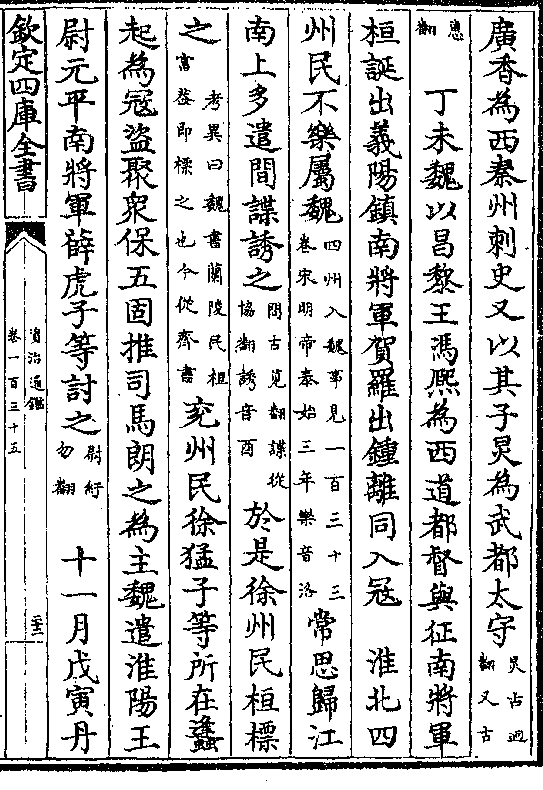 廣香為西秦州刺史又以其子炅為武都太守炅古迥翻又古
惠翻 丁未魏以昌黎王馮熈為西道都督與征南將軍
桓誕出義陽鎮南將軍賀羅出鍾離同入冦 淮北四
州民不樂屬魏四州入魏事見一百三十三卷宋明帝泰始三年樂音洛常思歸江
南上多遣間諜誘之間古莧翻諜從協翻誘音酉於是徐州民桓標
之考異曰魏書蘭陵民桓富葢即標之也今從齊書兖州民徐猛子等所在蠭
起為冦盜聚衆保五固推司馬朗之為主魏遣淮陽王
尉元平南將軍薛虎子等討之尉紆勿翻 十一月戊寅丹
欽定四庫全書
資治通鑑
卷一百三十五